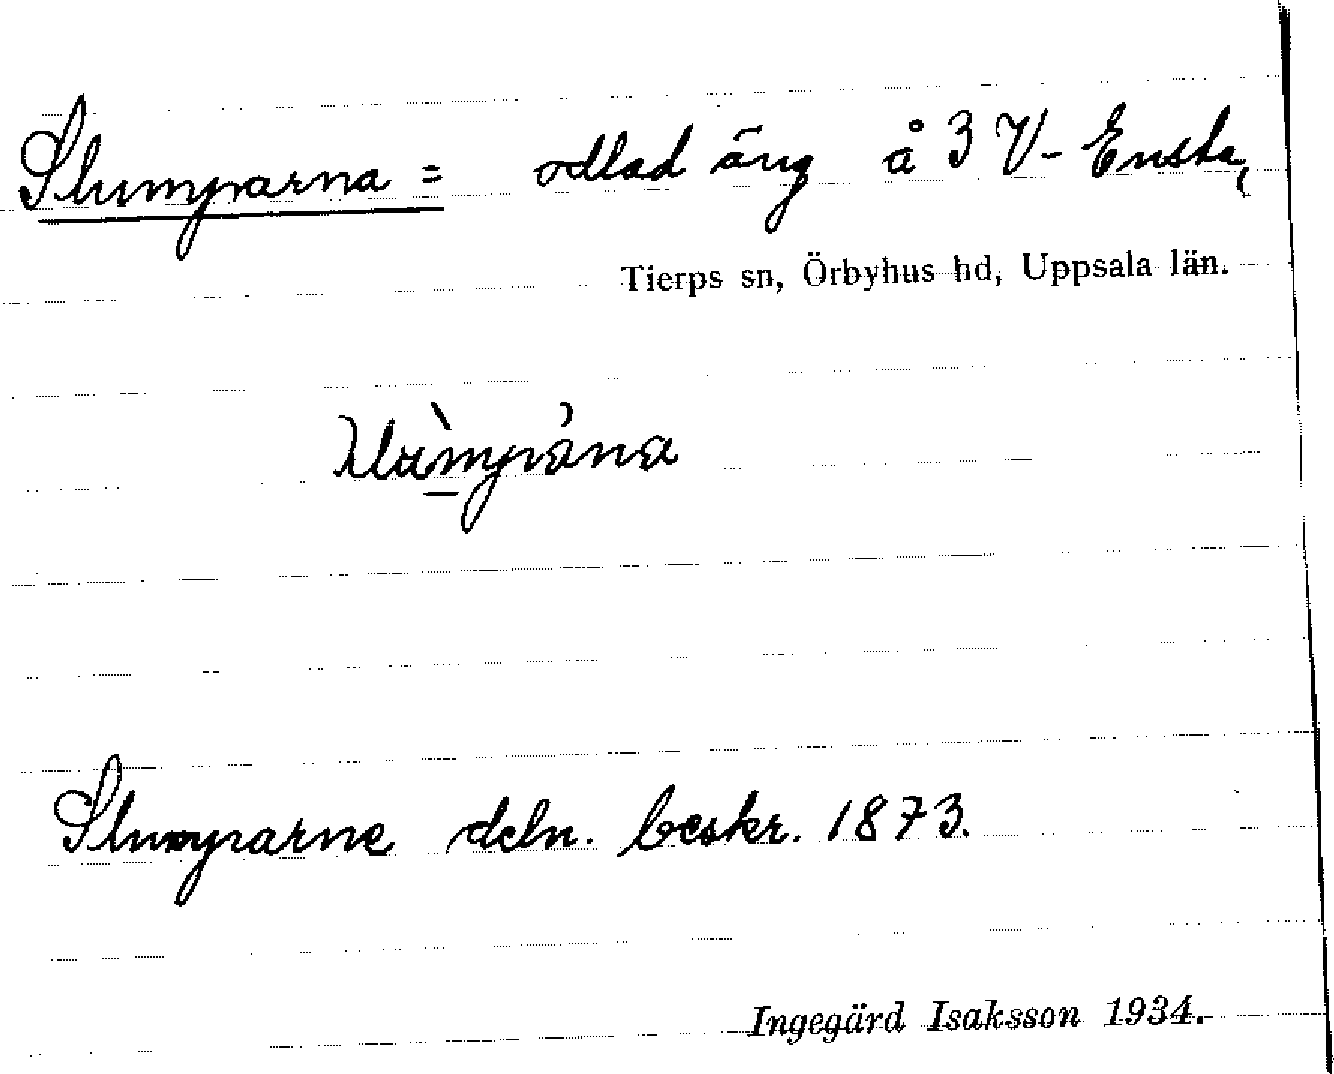 Slumparna = odlad äng å 3 V-Ensta,
Tierps sn, Örbyhus hd, Uppsala län.
Slumparne deln. beskr. 1873.
Ingegärd Isaksson 1934.